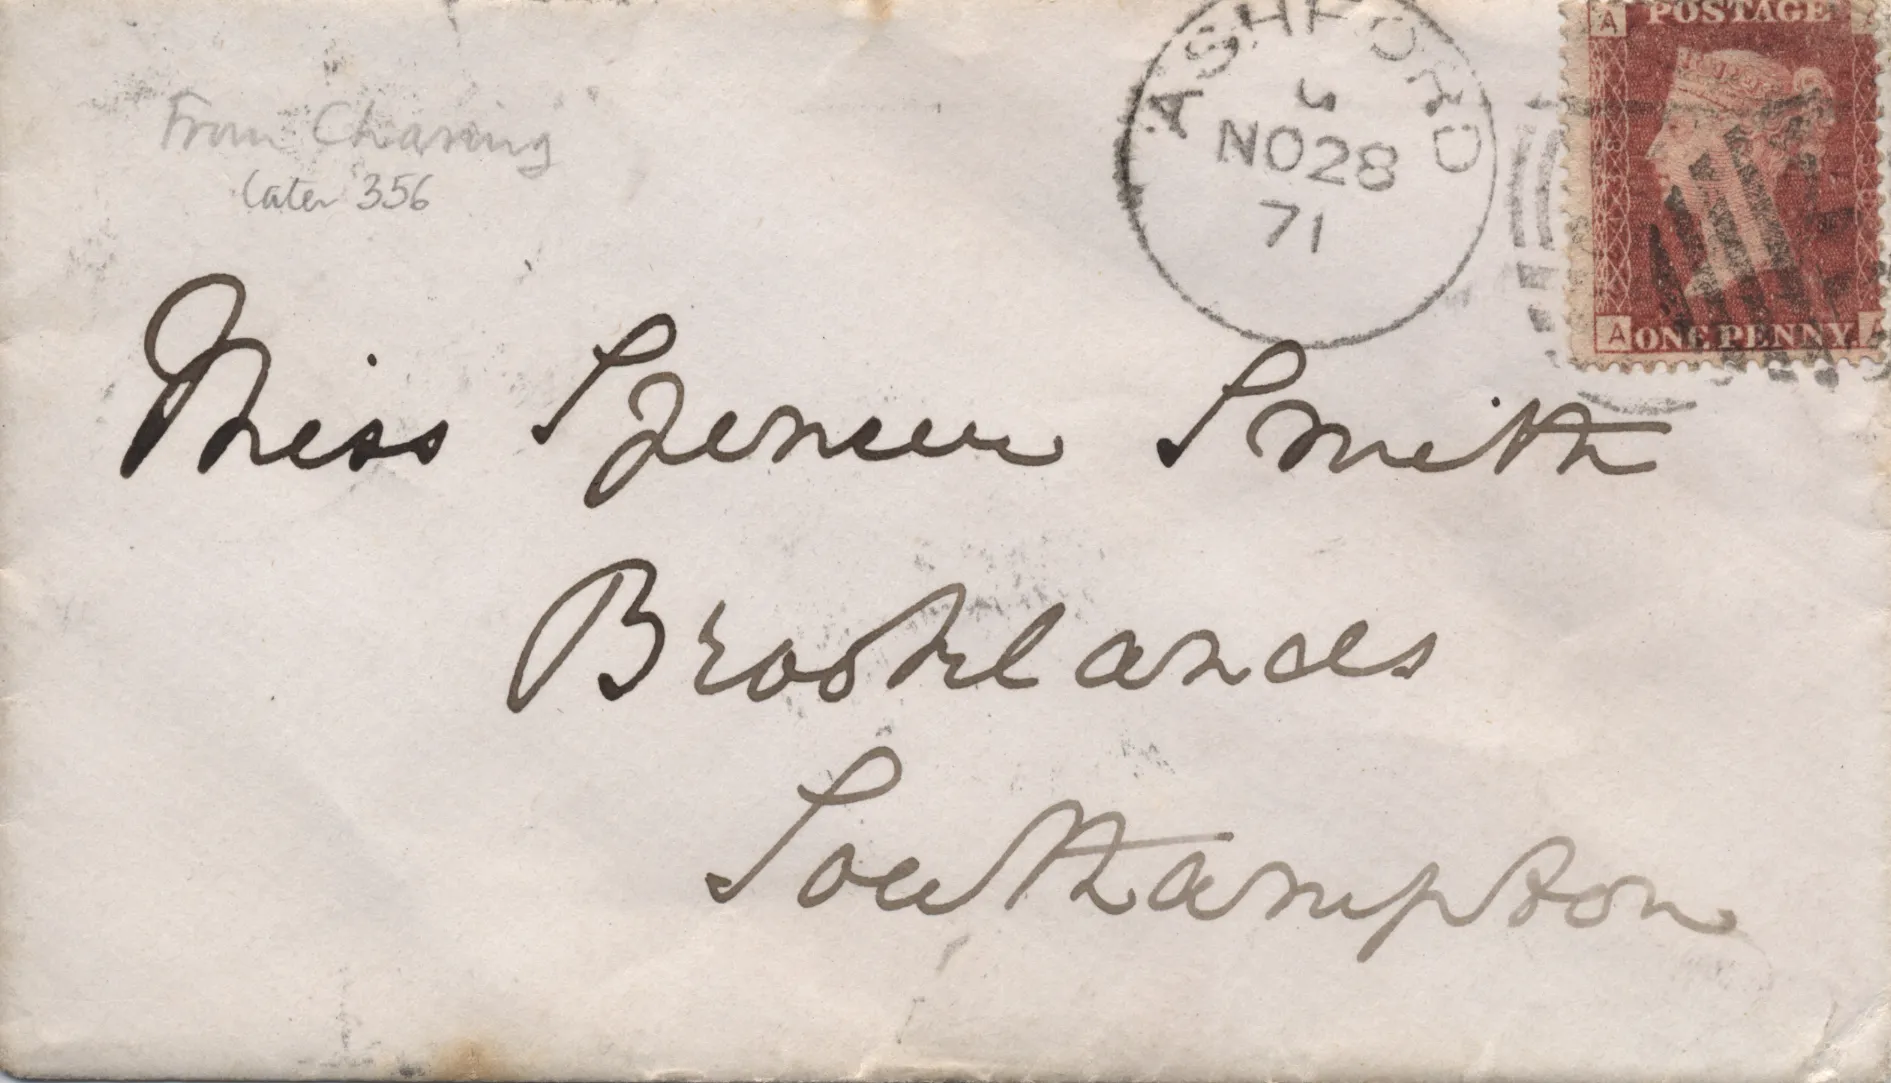 From Charing
later 356
ASHFORD
NO28
71
A POSTAGE
A ONE PENNY A
Miss Spencer Smith
Brooklands
Southampton